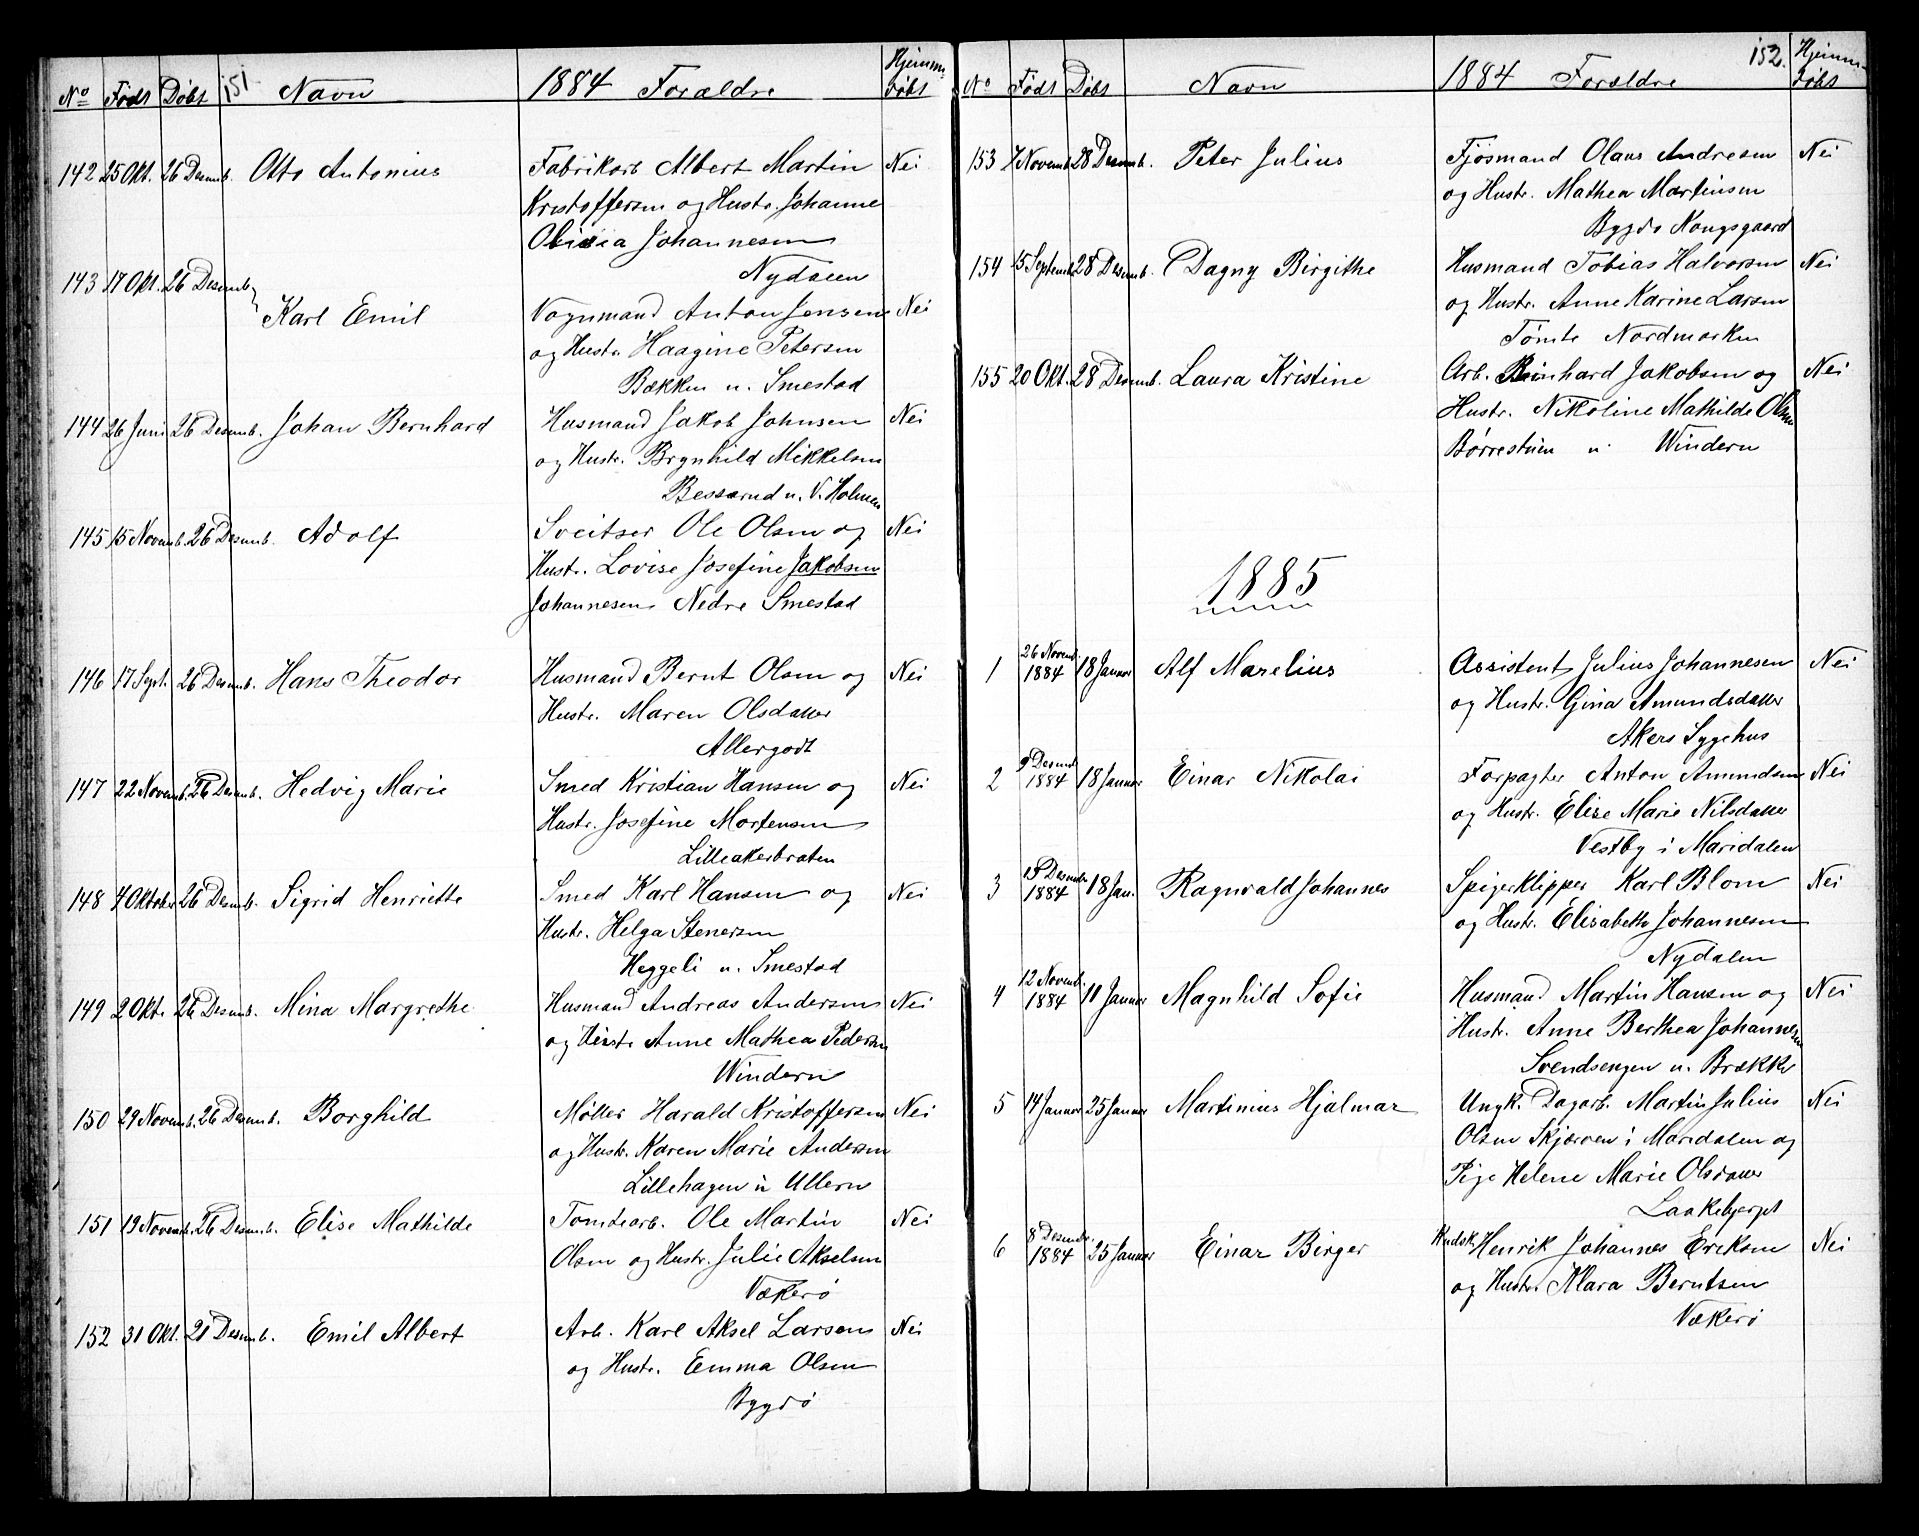 151
No Født Døbt Navn 1884 Forældre Hjemmedøbt
142 25 Okt. 26 Desemb. Otto Antonius Fabrikarb Albert Martin Nei
Kristoffersen og Hustr. Johanne
Johannesen
Nydalen
143 17 Okt. 26 Desemb.
Karl Emil Vognmand Anton Jensen Nei
og Hustr. Haagine Petersen
Bækken u. Smestad
144 26 Juni 26 Desemb. Johan Bernhard Husmand Jakob Johnsen Nei
og Hustr. Brynhild Mikkelsen
Besserud u. V. Holmen
145 15 Novemb. 26 Desemb. Adolf Sveitser Ole Olsen og Nei
Hustr. Lovise Josefine Jakobsen
Johannesen Nedre Smestad
146 17 Sept. 26 Desemb. Hans Theodor Husmand Bernt Olsen og Nei
Hustr. Maren Olsdatter
Allergodt
147 22 Novemb. 26 Desemb. Hedvig Marie Smed Kristian Hansen og Nei
Hustr. Josefine Mortensen
Lilleakerbraten
148 4 Oktober 26 Desemb. Sigrid Henriette Smed Karl Hansen og Nei
Hustr. Helga Stenersen
Heggeli u. Smestad
149 2 Okt. 26 Desemb. Mina Margrethe Husmand Andreas Andersen Nei
og Hustr Anne Mathea Pedersen
Windern
150 29 Novemb. 26 Desemb. Borghild Møller Harald Kristoffersen Nei
og Hustr. Karen Marie Andersen
Lillehagen u Ullern
151 19 Novemb. 26 Desemb. Elise Mathilde Tomtearb. Ole Martin Nei
Olsen og Hustr. Julie Akselsen
Vækerø
152 31 Okt. 21 Desemb. Emil Albert Arb. Karl Aksel Larsen Nei
og Hustr. Emma Olsen
Bygdø
152.
No Født Døbt Navn 1884 Forældre Hjemmedøbt
153 7 Novemb 28 Desemb. Peter Julius Fjøsmand Olaus Andresen Nei
og Hustr. Mathea Martinsen
Bygdø Kongsgaard
154 15 Septemb 28 Desemb. Dagny Birgithe Husmand Tobias Halvorsen Nei
og Hustr. Anne Karine Larsen
Tømte Nordmarken
155 20 Okt. 28 Desemb. Laura Kristine Arb. Reinhard Jakobsen og Nei
Hustr. Nikoline Mathilde Olsen
Børrestuen u Windern
1885
1 26 Novemb. 1884 18 Januar Alf Marelius Assistent Julius Johannesen Nei
og Hustr. Gina Amundsdatter
Akers Sygehus
2 9 Desemb 1884 18 Januar Einar Nikolai Forpagter Anton Amundsen Nei
og Hustr. Elise Marie Nilsdatter
Vestby i Maridalen
3 Desemb. 1884 18 Jan. Ragnvald Johannes Spigerklipper Karl Blom Nei
og Hustr. Elisabeth Johannesen
Nydalen
4 12 Novemb. 1884 11 Januar Magnhild Sofie Husmand Martin Hansen og Nei
Hustr. Anne Berthea Johannesen
Svendsengen u. Brække
5 14 Januar 25 Januar Martinius Hjalmar Ungk. Dagarb. Martin Julius Nei
Olsen Skjærven i Maridalen og
Pige Helene Marie Olsdatter
Laakebjerget
6 8 Desemb. 1884 25 Januar Einar Birger Kudsk Henrik Johannes Eriksen Nei
og Hustr. Klara Berntsen
Vækerø